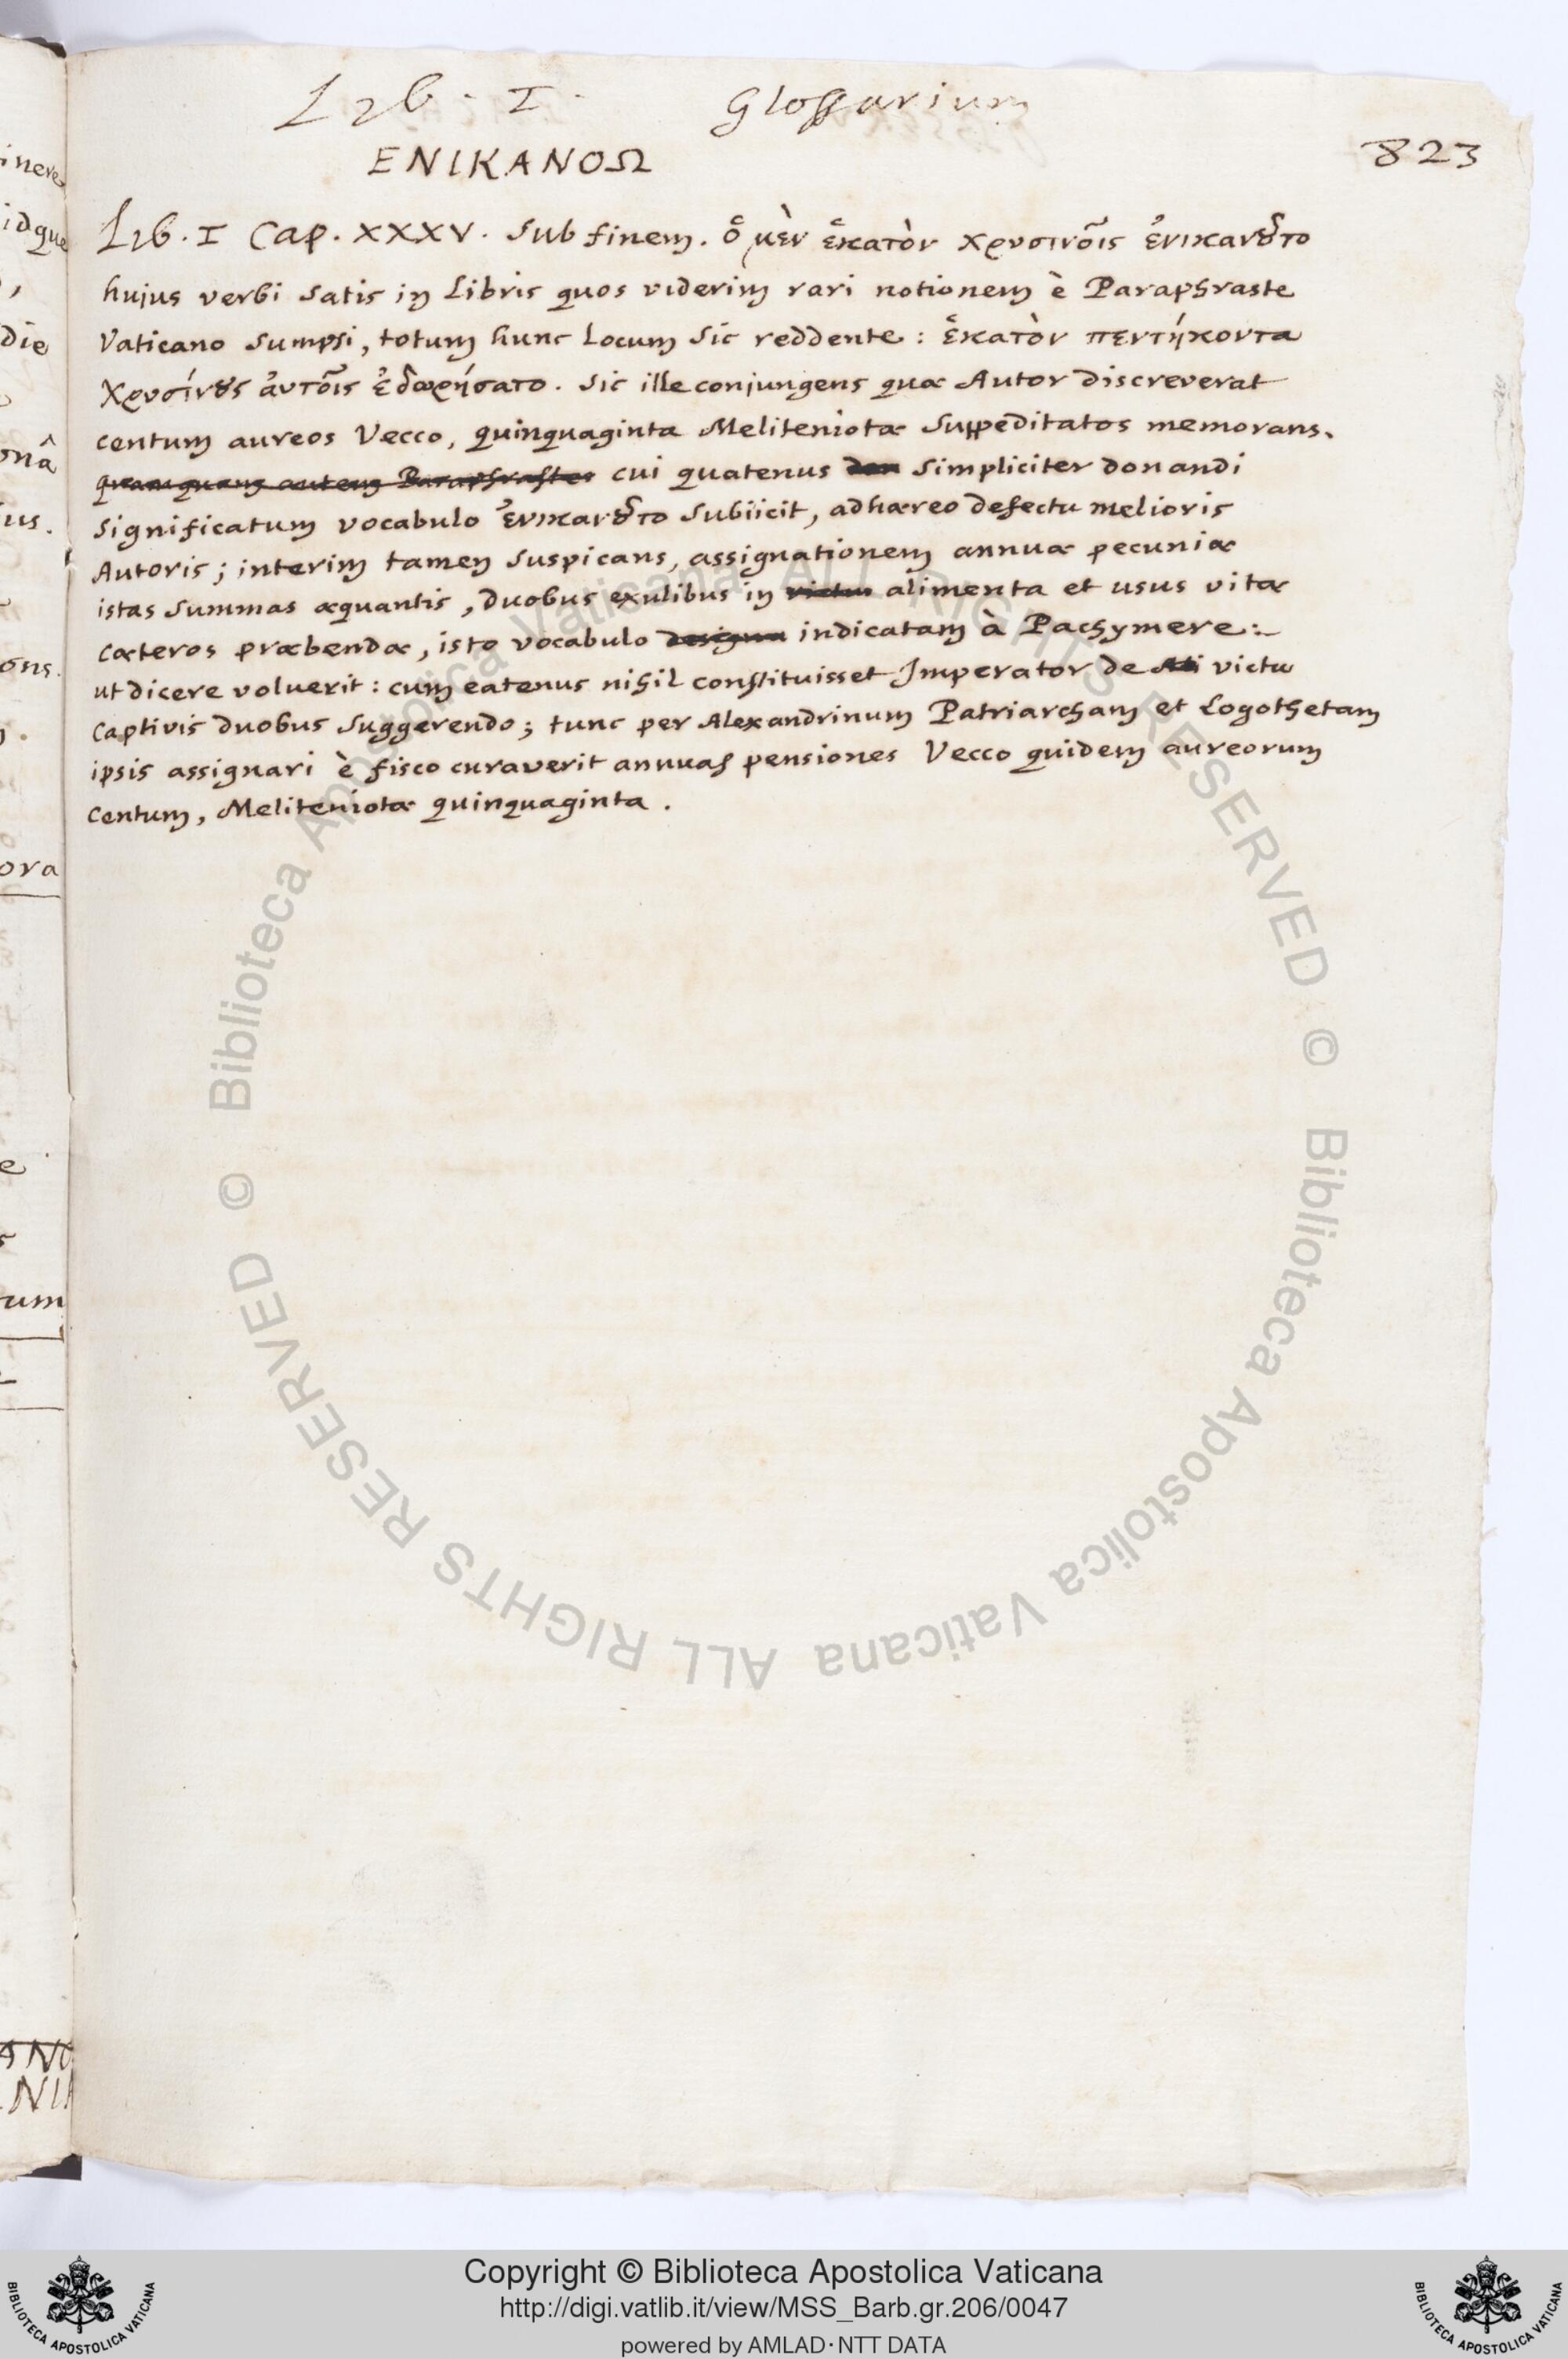 Lib. I. Glossarium
823
ΕΝΙΚΑΝΟΩ
Lib. I Cap. XXXV. sub finem. ὅ μὲν ἑκατὸν χρυσινοῖς ἐνικανȣ͂το
hujus verbi satis in Libris quos viderim rari notionem è Paraphraste
Vaticano sumpsi, totum hunc Locum sic reddente: ἑκατὸν πεντήκοντα
χρυσίνȣς ἀυτοῖς ἐδωρήσατο. sic ille conjungens quæ Autor discreverat
centum aureos Vecco, quinquaginta Meliteniotæ suppeditatos memorans.
quamquam autem Paraphrastes cui quatenus don simpliciter donandi
significatum vocabulo ἐνικανȣ͂το subiicit, adhæreo defectu melioris
Autoris; interim tamen suspicans, assignationem annuæ pecuniæ
istas summas æquantis, duobus exulibus in victum alimenta et usus vitæ
cæteros præbendæ, isto vocabulo designa indicatam à Pachymere:
ut dicere voluerit: cum eatenus nihil constituisset Imperator de victu
captivis duobus suggerendo; tunc per Alexandrinum Patriarcham et Logothetam
ipsis assignari è fisco curaverit annuas pensiones Vecco quidem aureorum
centum, Meliteniotæ quinquaginta.
inere
idque
,
die
onâ
ius.
ons.
ora
e
tum
Copyright © Biblioteca Apostolica Vaticana
http://digi.vatlib.it/view/MSS_Barb.gr.206/0047
powered by AMLAD·NTT DATA
BIBLIOTECA APOSTOLICA VATICANA
BIBLIOTECA APOSTOLICA VATICANA
© Biblioteca Apostolica Vaticana ALL RIGHTS RESERVED
© Biblioteca Apostolica Vaticana ALL RIGHTS RESERVED